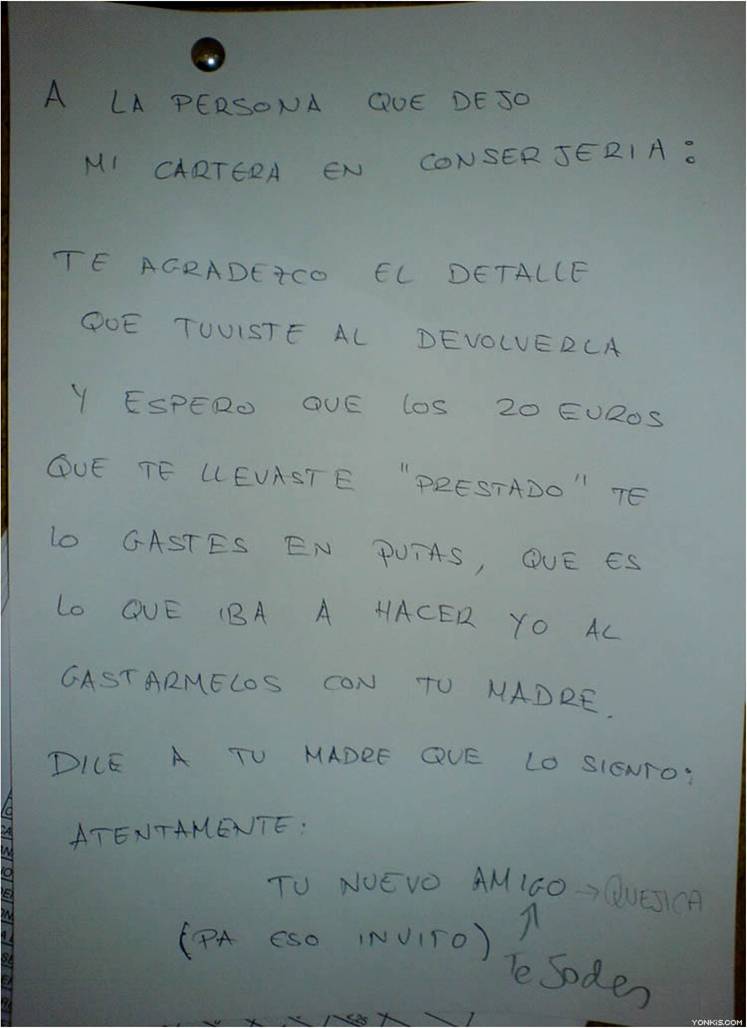 A LA PERSONA QUE DEJO
MI CARTERA EN CONSERJERIA:
TE AGRADEZCO EL DETALLE
QUE TUVISTE AL DEVOLVERLA
Y ESPERO QUE LOS 20 EUROS
QUE TE LLEVASTE "PRESTADO" TE
LO GASTES EN PUTAS, QUE ES
LO QUE IBA A HACER YO AL
GASTARMELOS CON TU MADRE.
DILE A TU MADRE QUE LO SIENTO:
ATENTAMENTE:
TU NUEVO AMIGO → QUEJICA
(PA ESO INVITO)
Te Jodes
YONKIS.COM